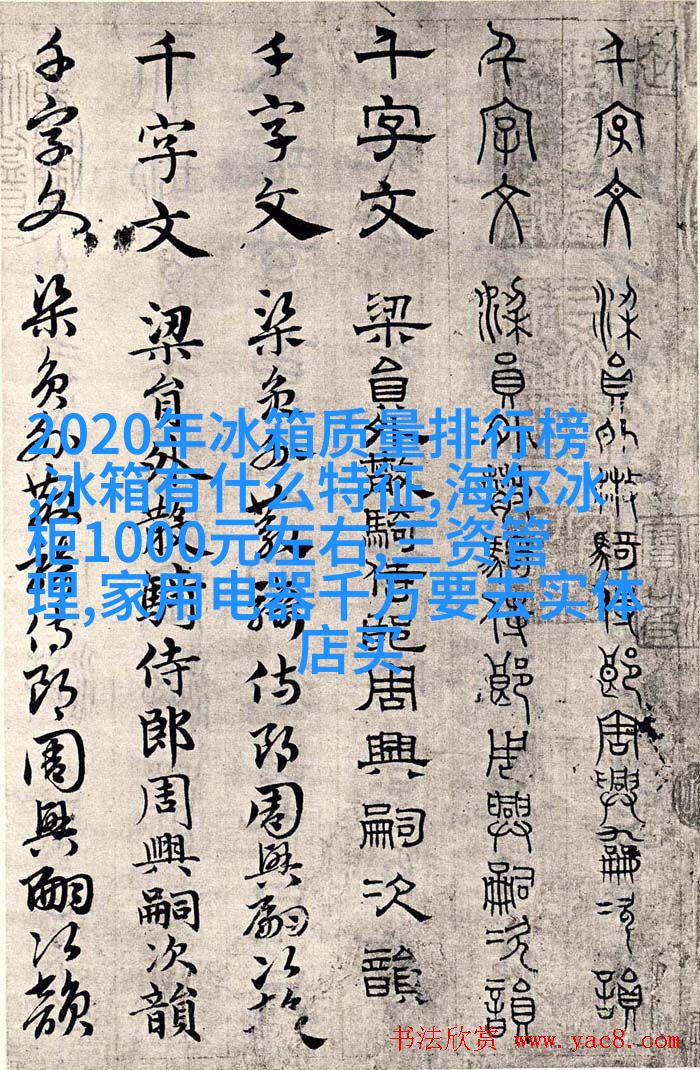 千字文 梁員外散騎侍郎周興嗣次韻
千字文 梁員外散騎侍郎周興嗣次韻
千字文 梁員外散騎侍郎周興嗣次韻
千字文 梁員外散騎侍郎周興嗣次韻
千字文 梁員外散騎侍郎周興嗣次韻
千字文 梁員外散騎侍郎周興嗣次韻
2020年冰箱质量排行榜
,冰箱有什么特征,海尔冰
柜1000元左右,三资管
理,家用电器千万要去实体
店买
书法欣赏 www.yac8.com